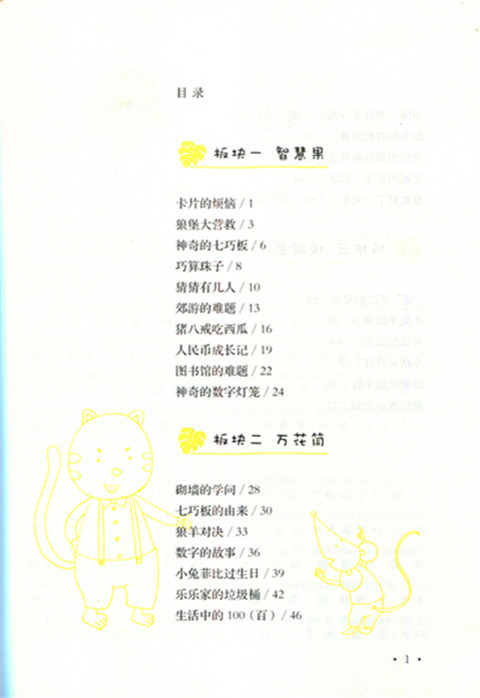 目录
板块一 智慧果
卡片的烦恼 / 1
狼堡大营救 / 3
神奇的七巧板 / 6
巧算珠子 / 8
猜猜有几人 / 10
郊游的难题 / 13
猪八戒吃西瓜 / 16
人民币成长记 / 19
图书馆的难题 / 22
神奇的数字灯笼 / 24
板块二 万花筒
砌墙的学问 / 28
七巧板的由来 / 30
狼羊对决 / 33
数字的故事 / 36
小兔菲比过生日 / 39
乐乐家的垃圾桶 / 42
生活中的 100（百）/ 46
• 1 •